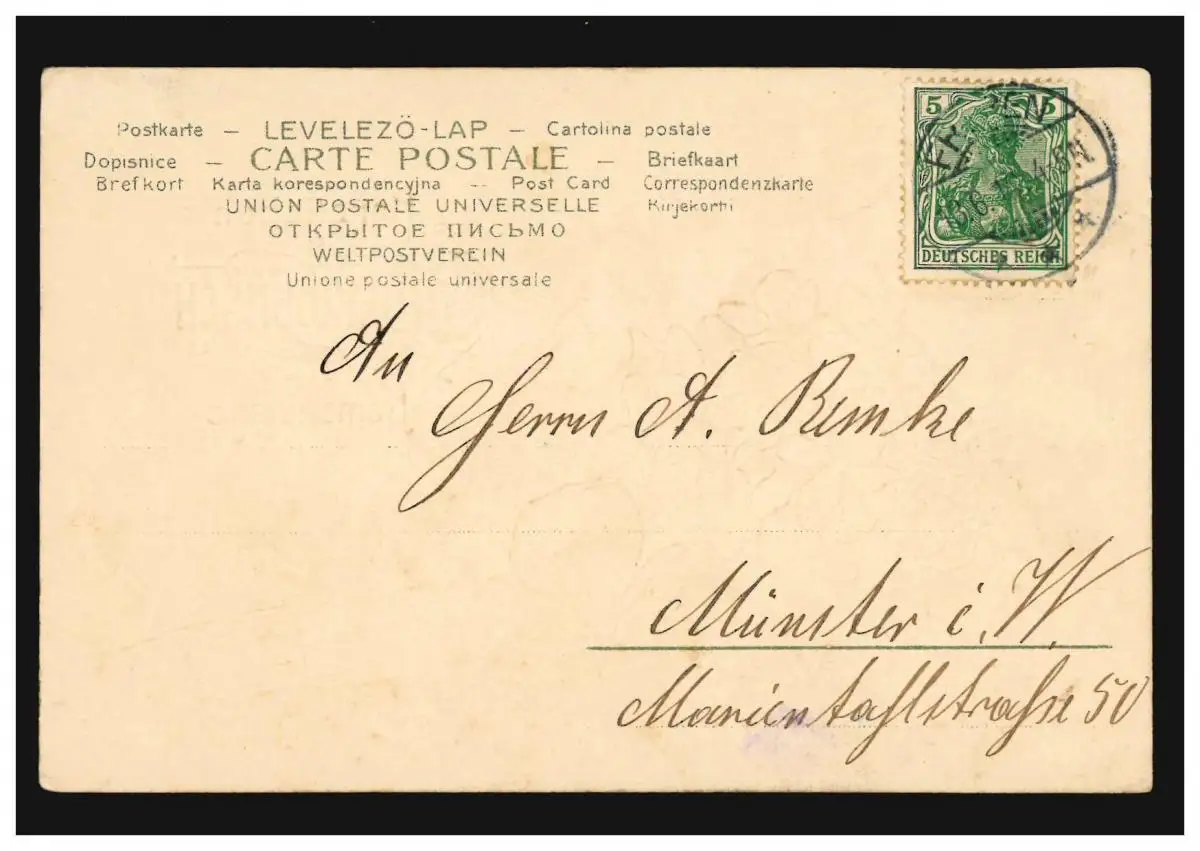 Postkarte – LEVELEZŐ-LAP – Cartolina postale
Dopisnice – CARTE POSTALE – Briefkaart
Brefkort Karta korespondencyjna -- Post Card Correspondenzkarte
UNION POSTALE UNIVERSELLE Kirjekorti
ОТКРЫТОЕ ПИСЬМО
WELTPOSTVEREIN
Unione postale universale
5 5
DEUTSCHES REICH
An
Herrn A. Remke
Münster i. W.
Marientahlstraße 50